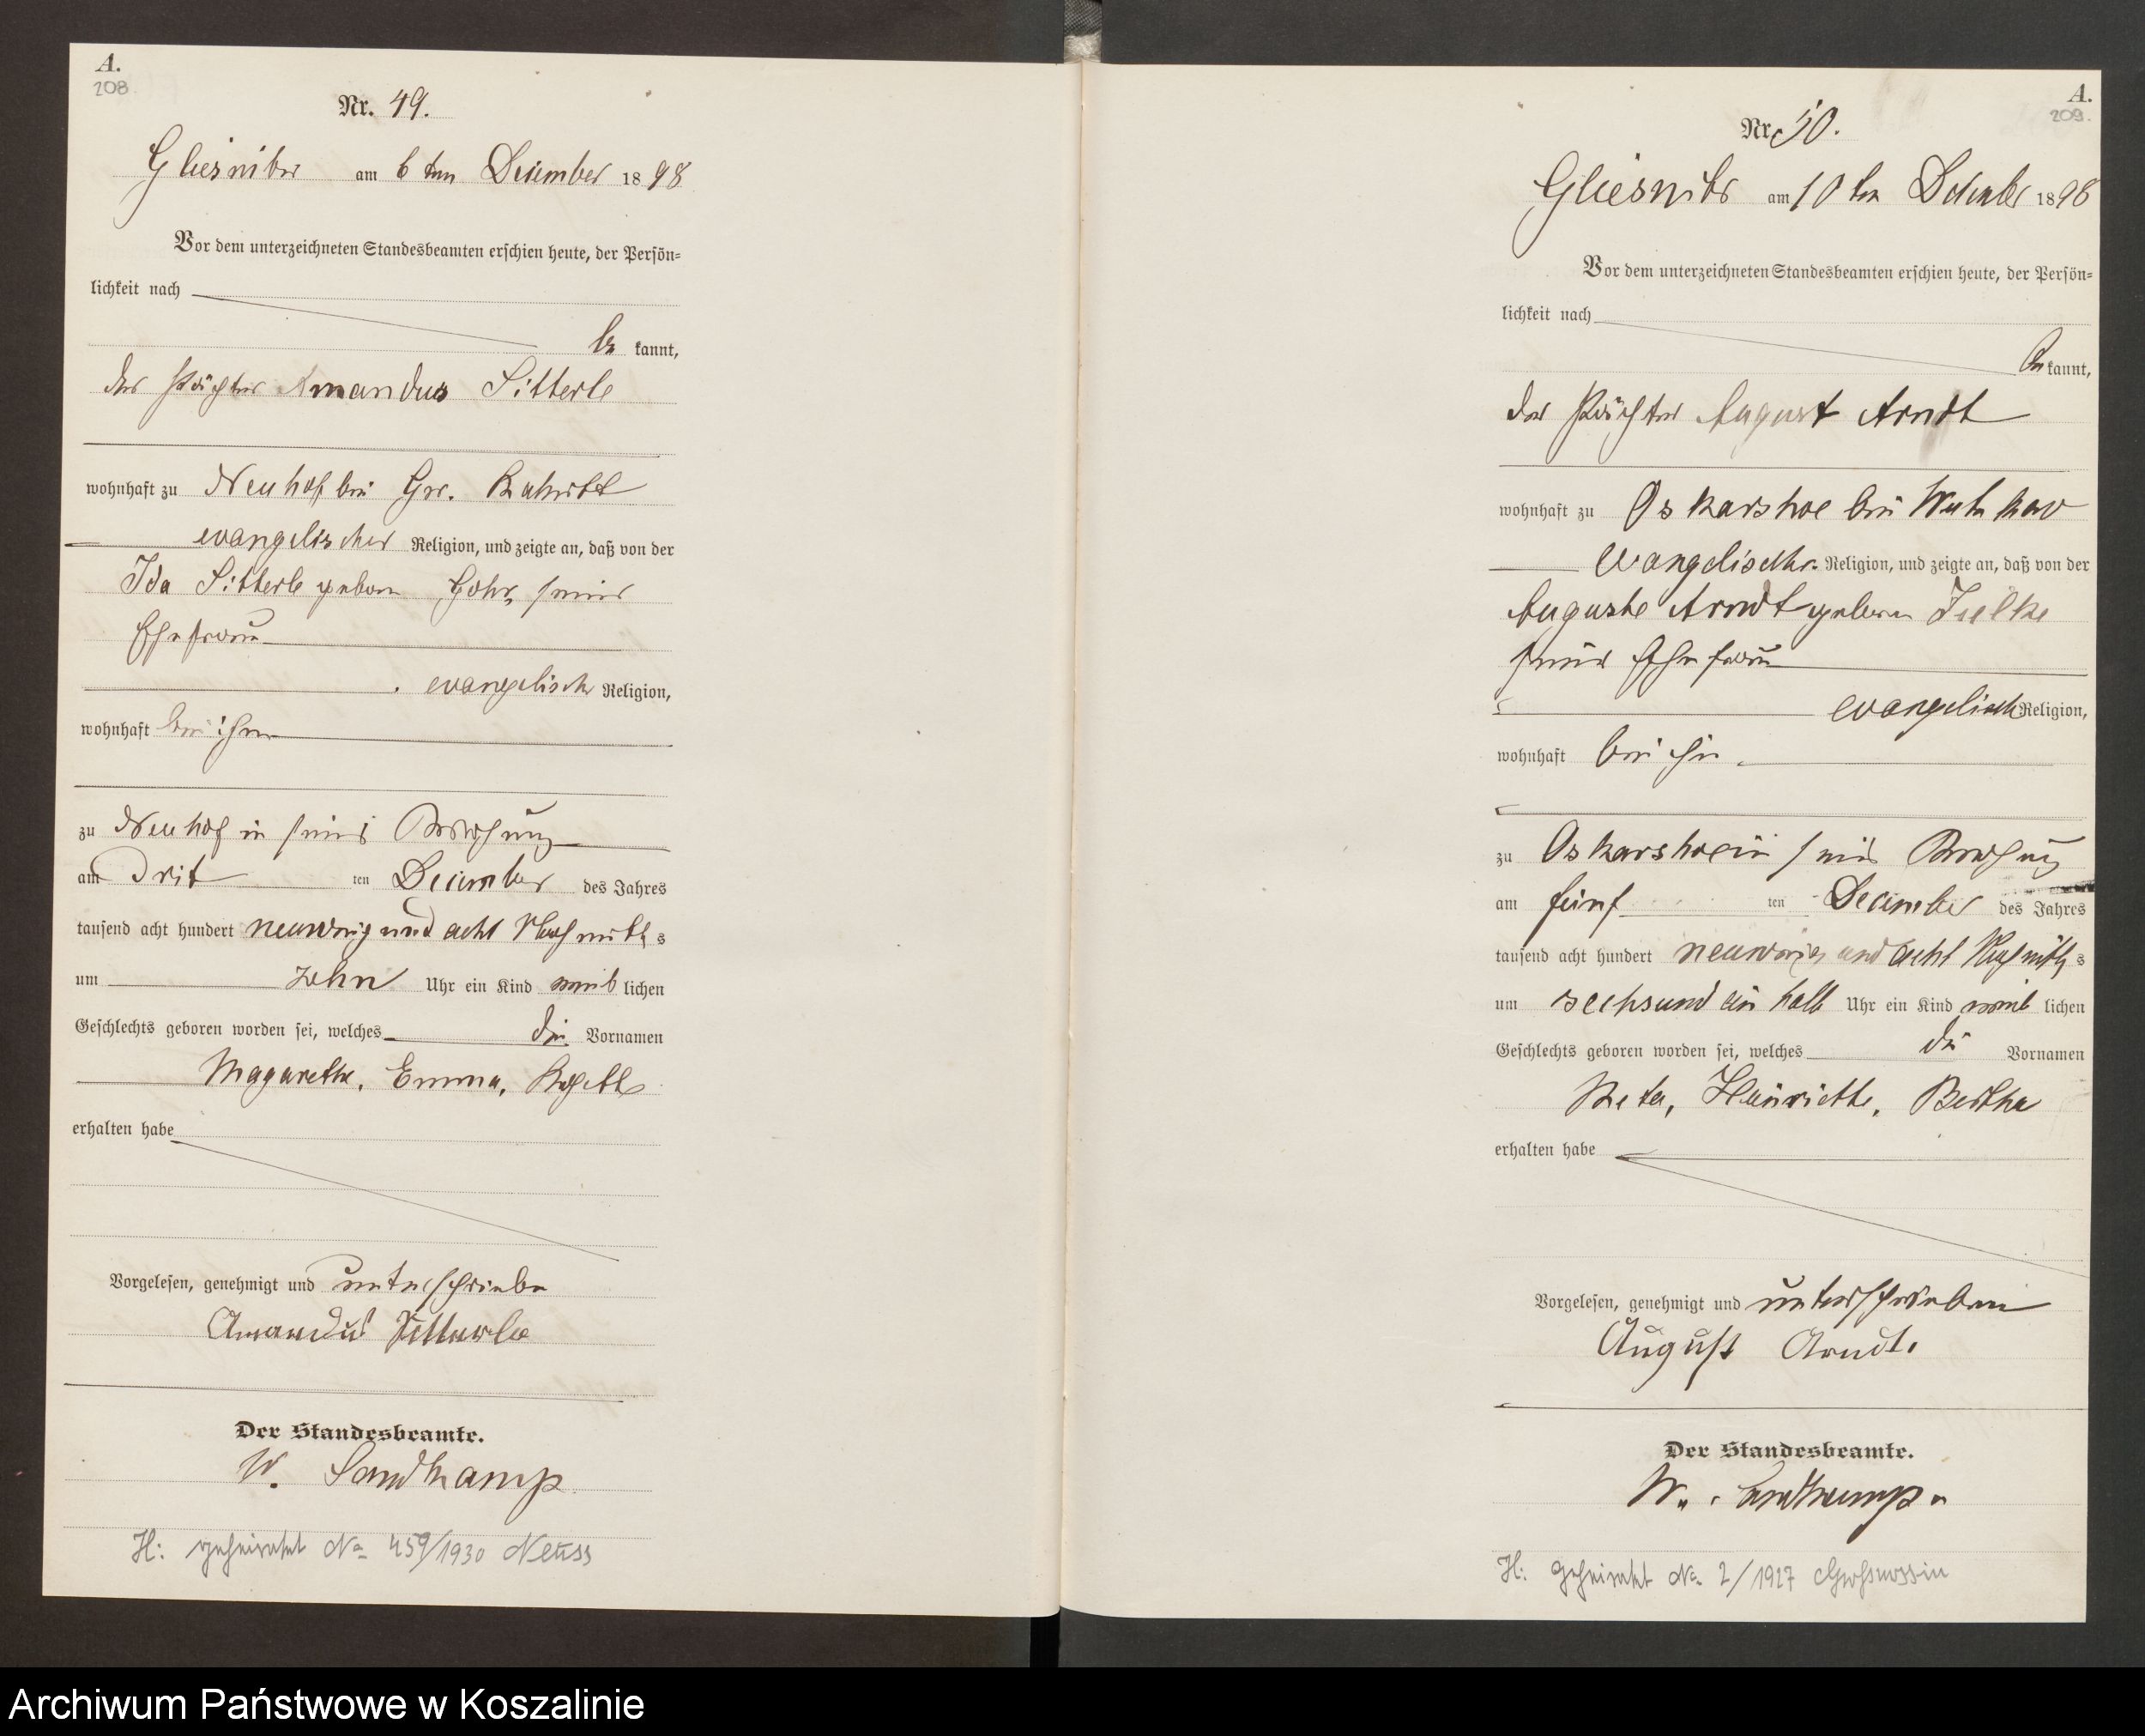 A.
208
Nr. 49.
Gliesnitz am 6ten December 1898
Vor dem unterzeichneten Standesbeamten erschien heute, der Persön-
lichkeit nach
be kannt,
der Pächter Amandus Sitterle
wohnhaft zu Neuhof bei Gr.
evangelischer Religion, und zeigte an, daß von der
Ida Sitterle geboren seiner
Ehefrau
evangelisch Religion,
wohnhaft bei ihm
zu Neuhof in seiner Wohnung
am drit ten December des Jahres
tausend acht hundert neunzig und acht Nachmittags
um zehn Uhr ein Kind weib lichen
Geschlechts geboren worden sei, welches die Vornamen
Magarethe, Emma,
erhalten habe
Vorgelesen, genehmigt und unterschrieben
Amandus Sitterle
Der Standesbeamte.
W. Sandkamp
H: geheiratet No 459/1930 Neuss
A.
209.
Nr. 50.
Gliesnitz am 10ten December 1898
Vor dem unterzeichneten Standesbeamten erschien heute, der Persön-
lichkeit nach
be kannt,
der Pächter August Arndt
wohnhaft zu Oskarshoe bei
evangelischer Religion, und zeigte an, daß von der
Auguste Arndt geboren
seiner Ehefrau
evangelisch Religion,
wohnhaft bei ihm
zu Oskarshoe in seiner Wohnung
am fünf ten December des Jahres
tausend acht hundert neunzig und acht Nachmittags
um sechsundein halb Uhr ein Kind weib lichen
Geschlechts geboren worden sei, welches die Vornamen
Meta, Heinriette, Bertha
erhalten habe
Vorgelesen, genehmigt und unterschrieben
August Arndt.
Der Standesbeamte.
W. Sandkamp.
H: geheiratet No 2/1927 Großnossin
Archiwum Państwowe w Koszalinie